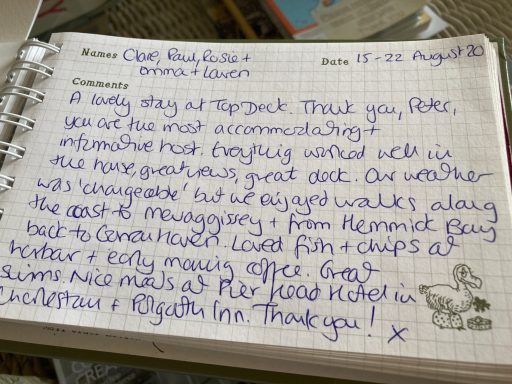 Names Claire, Paul, Rosie +
Emma + Lauren
Date 15-22 August 20
Comments
A lovely stay at TopDeck. Thank you, Peter,
you are the most accommodating +
informative host. Everything worked well in
the house, great views, great deck. Our weather
was 'changeable' but we enjoyed walks along
the coast to mevaggissey + from Hemmick Bay
back to Gorran Haven. Loved fish + chips at
harbar + early morning coffee. Great
swims. Nice meals at Pier Head Hotel in
Charlestown + Polgooth Inn. Thank you! x